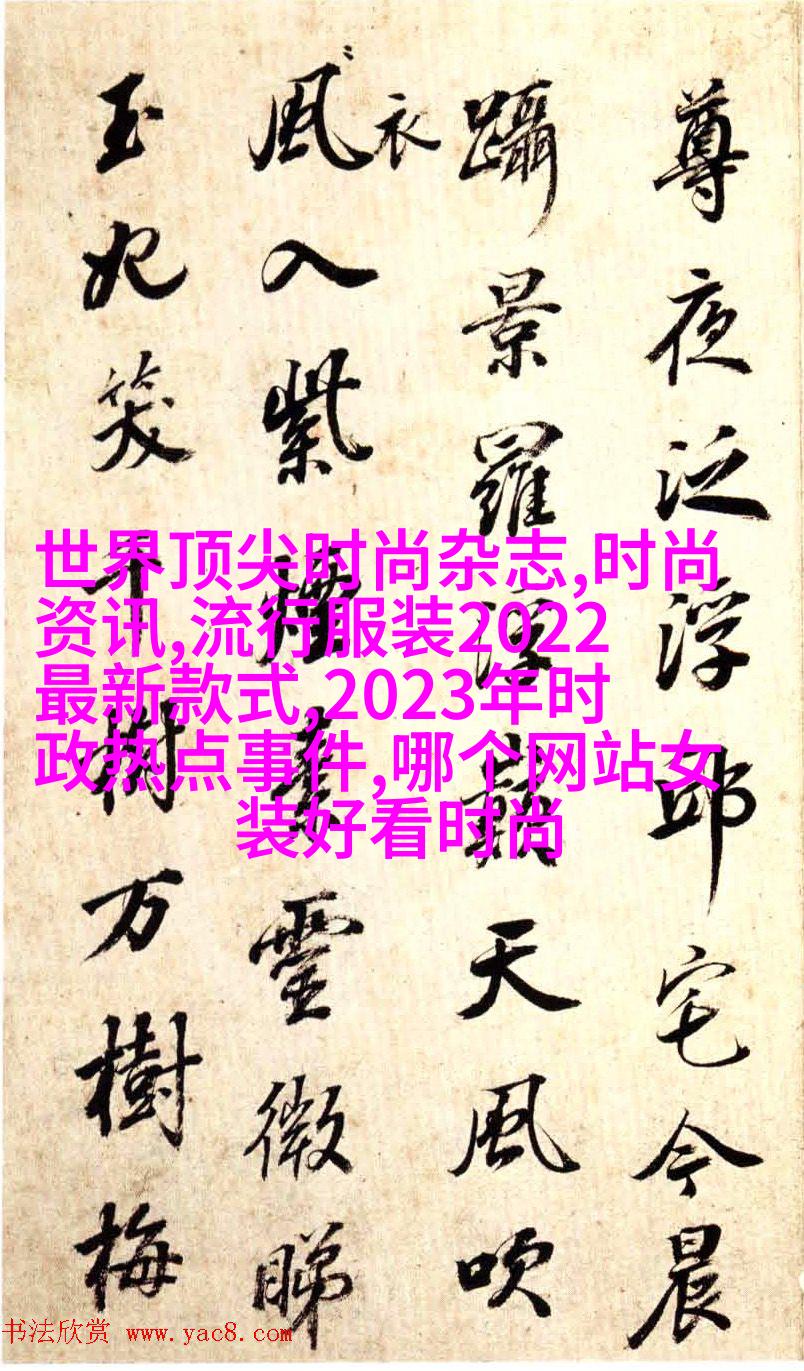 尊夜泛浮邱宅今晨
躡景羅浮天風吹
風衣入紫煙霊微睇
玉妃笑千樹万樹梅
世界顶尖时尚杂志,时尚
资讯,流行服装2022
最新款式,2023年时
政热点事件,哪个网站女
装好看时尚
书法欣赏 www.yac8.com